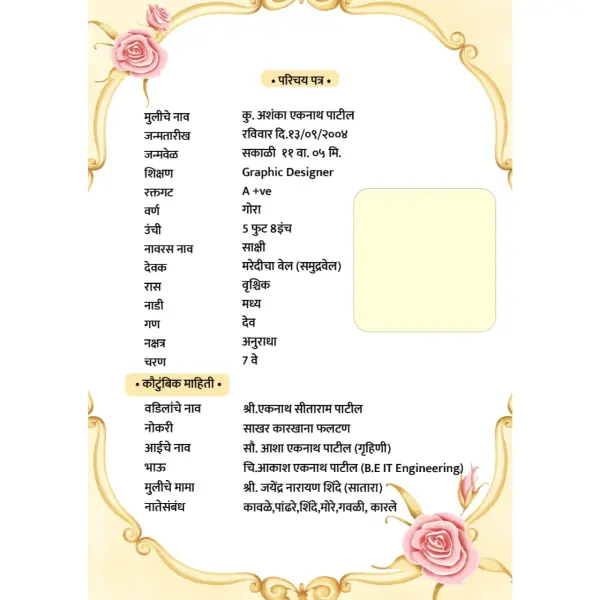 • परिचय पत्र •
मुलीचे नाव कु. अशंका एकनाथ पाटील
जन्मतारीख रविवार दि.१३/०९/२००४
जन्मवेळ सकाळी ११ वा. ०५ मि.
शिक्षण Graphic Designer
रक्तगट A +ve
वर्ण गोरा
उंची 5 फुट 8इंच
नावरस नाव साक्षी
देवक मरेदीचा वेल (समुद्रवेल)
रास वृश्चिक
नाडी मध्य
गण देव
नक्षत्र अनुराधा
चरण 7 वे
• कौटुंबिक माहिती •
वडिलांचे नाव श्री.एकनाथ सीताराम पाटील
नोकरी साखर कारखाना फलटण
आईचे नाव सौ. आशा एकनाथ पाटील (गृहिणी)
भाऊ चि.आकाश एकनाथ पाटील (B.E IT Engineering)
मुलीचे मामा श्री. जयेंद्र नारायण शिंदे (सातारा)
नातेसंबंध कावळे,पांढरे,शिंदे,मोरे,गवळी, कारले